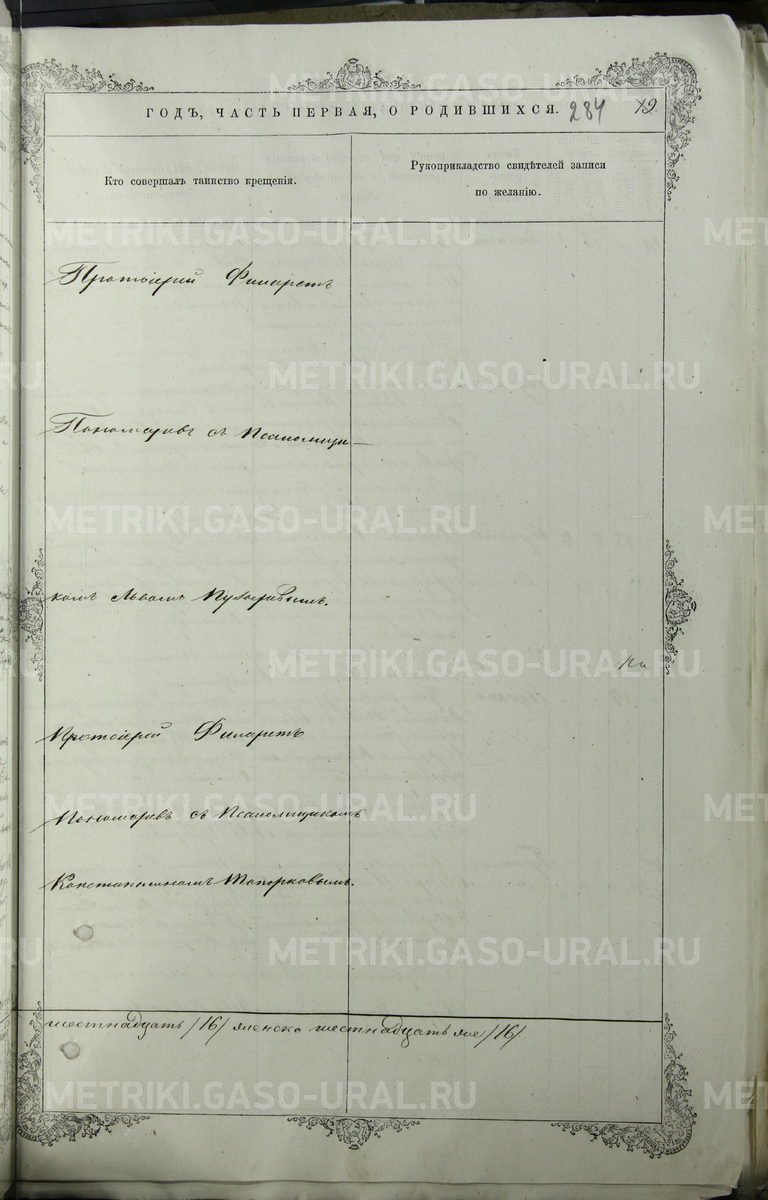 ГОДЪ, ЧАСТЬ ПЕРВАЯ, О РОДИВШИХСЯ. 284 79.
Кто совершалъ таинство крещенія.
Рукоприкладство свидѣтелей записи
по желанію.
Протоіерей Филаретъ
Пономаревъ съ Псаломщи-
комъ Львомъ
Протоіерей Филаретъ
Пономаревъ съ Псаломщикомъ
Константиномъ Топорковымъ.
шестнадцать /16/ женска шестнадцать же /16/
METRIKI.GASO-URAL.RU